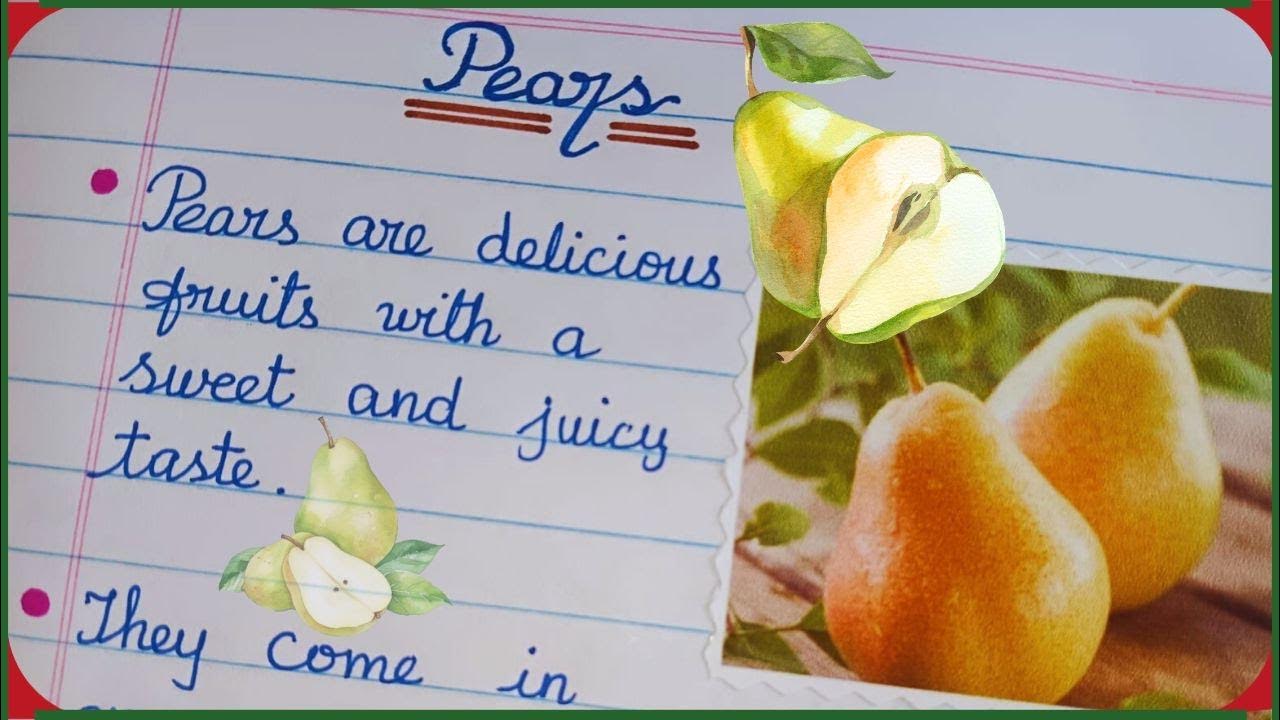 Pears
Pears are delicious
fruits with a
sweet and juicy
taste.
They come in